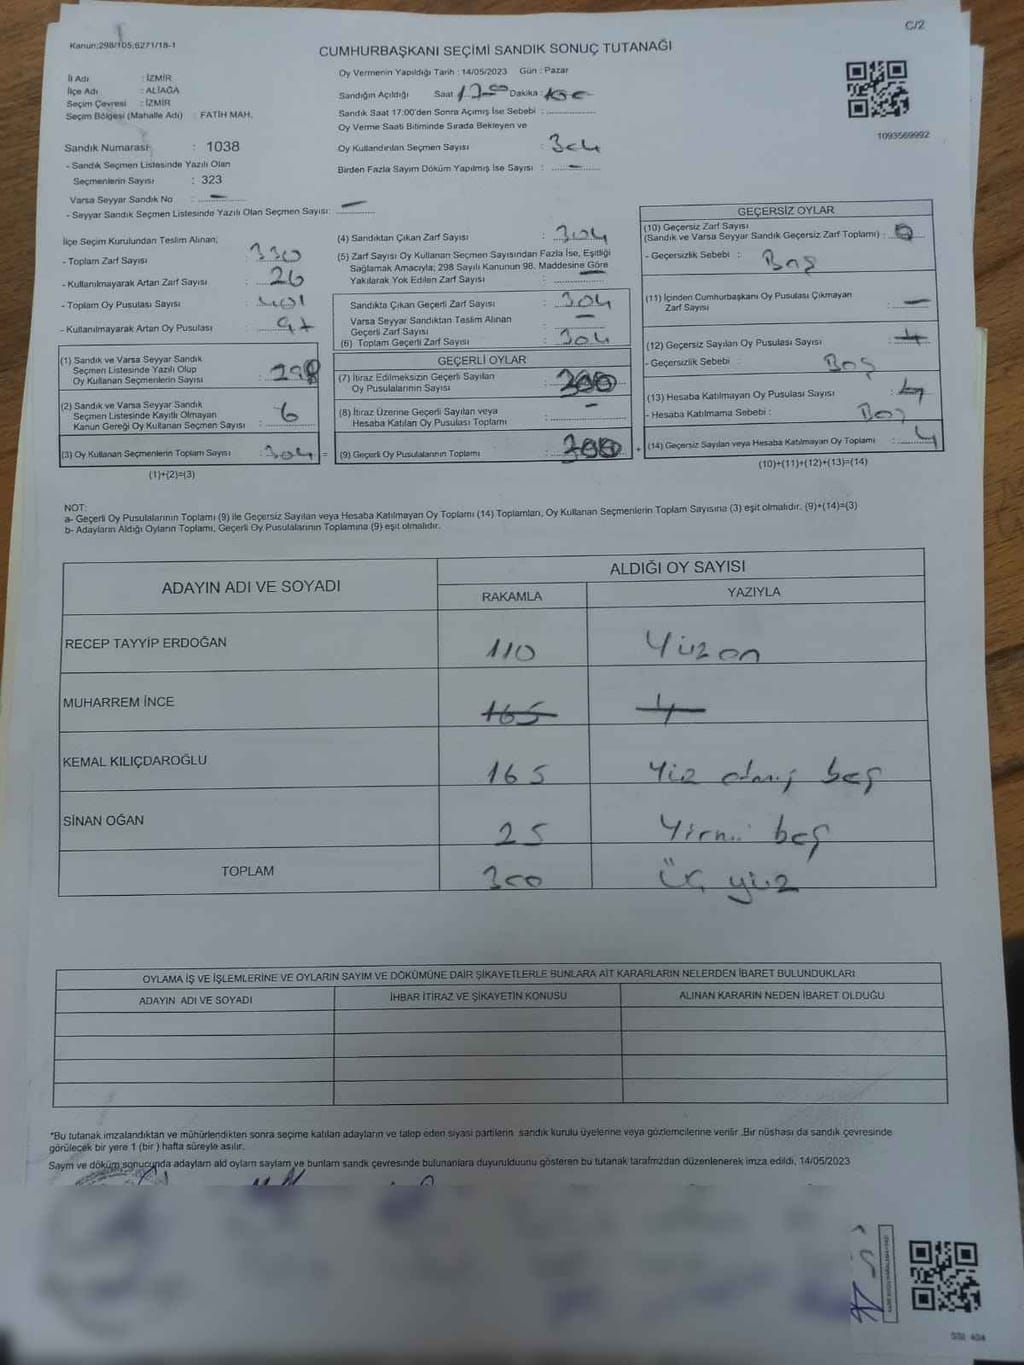 C/2
Kanun:298/105,6271/18-1
CUMHURBAŞKANI SEÇİMİ SANDIK SONUÇ TUTANAĞI
İl Adı : İZMİR
İlçe Adı : ALİAĞA
Seçim Çevresi : İZMİR
Seçim Bölgesi (Mahalle Adı) : FATİH MAH.
Sandık Numarası : 1038
- Sandık Seçmen Listesinde Yazılı Olan
Seçmenlerin Sayısı : 323
Varsa Seyyar Sandık No : —
- Seyyar Sandık Seçmen Listesinde Yazılı Olan Seçmen Sayısı: —
Oy Vermenin Yapıldığı Tarih : 14/05/2023 Gün : Pazar
Sandığın Açıldığı Saat 17:00 Dakika :
Sandık Saat 17:00'den Sonra Açımış İse Sebebi :
Oy Verme Saati Bitiminde Sırada Bekleyen ve
Oy Kullandırılan Seçmen Sayısı : 304
Birden Fazla Sayım Döküm Yapılmış İse Sayısı : —
1093569992
İlçe Seçim Kurulundan Teslim Alınan;
- Toplam Zarf Sayısı : 330
- Kullanılmayarak Artan Zarf Sayısı : 26
- Toplam Oy Pusulası Sayısı : 401
- Kullanılmayarak Artan Oy Pusulası : 97
(1) Sandık ve Varsa Seyyar Sandık
Seçmen Listesinde Yazılı Olup
Oy Kullanan Seçmenlerin Sayısı : 298
(2) Sandık ve Varsa Seyyar Sandık
Seçmen Listesinde Kayıtlı Olmayan
Kanun Gereği Oy Kullanan Seçmen Sayısı : 6
(3) Oy Kullanan Seçmenlerin Toplam Sayısı : 304 =
(1)+(2)=(3)
(4) Sandıktan Çıkan Zarf Sayısı : 304
(5) Zarf Sayısı Oy Kullanan Seçmen Sayısından Fazla İse, Eşitliği
Sağlamak Amacıyla; 298 Sayılı Kanunun 98. Maddesine Göre
Yakılarak Yok Edilen Zarf Sayısı : —
Sandıkta Çıkan Geçerli Zarf Sayısı : 304
Varsa Seyyar Sandıktan Teslim Alınan
Geçerli Zarf Sayısı : —
(6) Toplam Geçerli Zarf Sayısı : 304
GEÇERLİ OYLAR
(7) İtiraz Edilmeksizin Geçerli Sayılan
Oy Pusulalarının Sayısı : 300
(8) İtiraz Üzerine Geçerli Sayılan veya
Hesaba Katılan Oy Pusulası Toplamı : —
(9) Geçerli Oy Pusulalarının Toplamı : 300 +
GEÇERSİZ OYLAR
(10) Geçersiz Zarf Sayısı
(Sandık ve Varsa Seyyar Sandık Geçersiz Zarf Toplamı) : 0
- Geçersizlik Sebebi : Boş
(11) İçinden Cumhurbaşkanı Oy Pusulası Çıkmayan
Zarf Sayısı : —
(12) Geçersiz Sayılan Oy Pusulası Sayısı : 4
- Geçersizlik Sebebi : Boş
(13) Hesaba Katılmayan Oy Pusulası Sayısı :
- Hesaba Katılmama Sebebi : Boş
(14) Geçersiz Sayılan veya Hesaba Katılmayan Oy Toplamı : 4
(10)+(11)+(12)+(13)=(14)
NOT:
a- Geçerli Oy Pusulalarının Toplamı (9) ile Geçersiz Sayılan veya Hesaba Katılmayan Oy Toplamı (14) Toplamları, Oy Kullanan Seçmenlerin Toplam Sayısına (3) eşit olmalıdır. (9)+(14)=(3)
b- Adayların Aldığı Oyların Toplamı, Geçerli Oy Pusulalarının Toplamına (9) eşit olmalıdır.
ADAYIN ADI VE SOYADI ALDIĞI OY SAYISI
RAKAMLA YAZIYLA
RECEP TAYYİP ERDOĞAN 110 Yüz on
MUHARREM İNCE 165
KEMAL KILIÇDAROĞLU 165 Yüz altmış beş
SİNAN OĞAN 25 Yirmi beş
TOPLAM 300 Üç yüz
OYLAMA İŞ VE İŞLEMLERİNE VE OYLARIN SAYIM VE DÖKÜMÜNE DAİR ŞİKAYETLERLE BUNLARA AİT KARARLARIN NELERDEN İBARET BULUNDUKLARI
ADAYIN ADI VE SOYADI İHBAR İTİRAZ VE ŞİKAYETİN KONUSU ALINAN KARARIN NEDEN İBARET OLDUĞU
*Bu tutanak imzalandıktan ve mühürlendikten sonra seçime katılan adayların ve talep eden siyasi partilerin sandık kurulu üyelerine veya gözlemcilerine verilir .Bir nüshası da sandık çevresinde
görülecek bir yere 1 (bir ) hafta süreyle asılır.
Sayım ve döküm sonucunda adayların ald oyların sayıların ve bunların sandık çevresinde bulunanlara duyurulduunu gösteren bu tutanak tarafımızdan düzenlenerek imza edildi. 14/05/2023